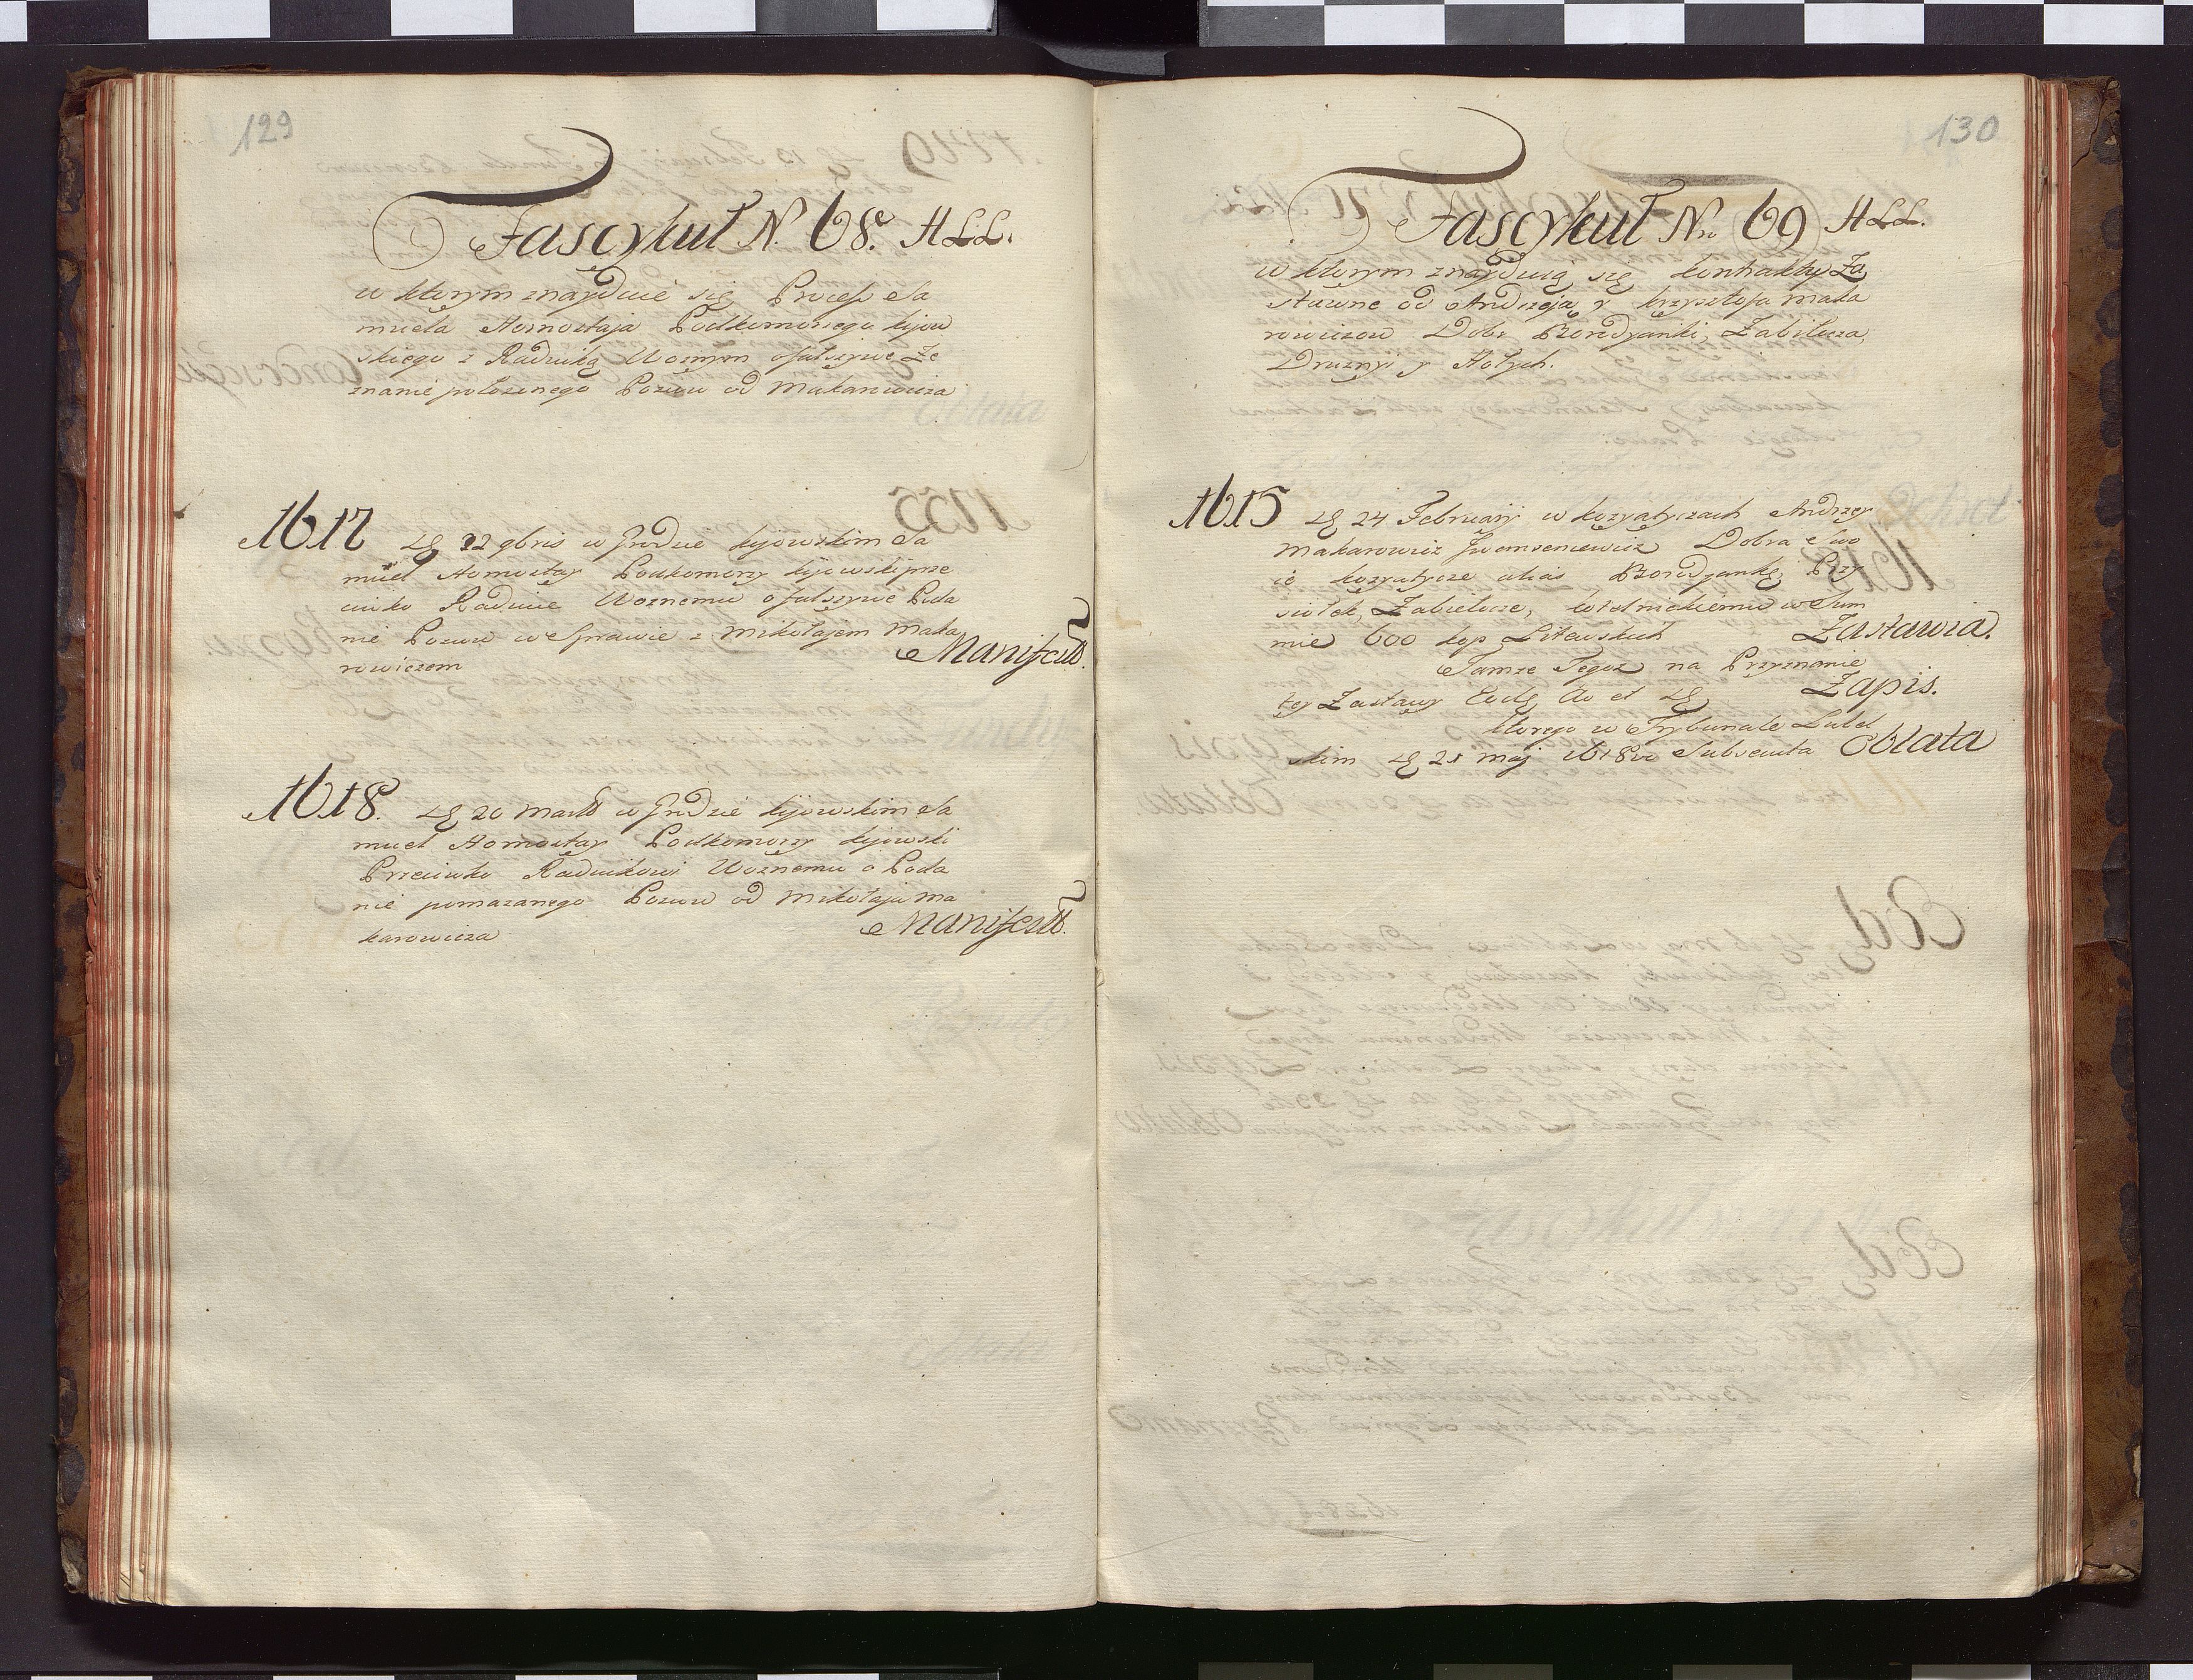 129
Fascykuł N. 68. HLL.
w ktorym znayduie się Process Sa
muela Hornostaja Podkomorzego kijow
skiego z Raduiką Woznym o fałszywe Ze
znanie położonego Pozwu od Makarowicza
1617 22 9bris w Grodzie kijowskim Sa
muel Hornostay Podkomorzy kijowski prze
ciwko Woznemu o fałszywe Poda
nie Pozwu w Sprawie z Mikołajem Maka
rowiczem Manifest.
1618. 20 Marti w Grodzie kijowskim Sa
muel Hornostay Podkomorzy kijowski
Przeciwko Raduikowi Woznemu o Poda
nie pomazanego Pozwu od Mikołaja Ma
karowicza Manifest.
130
Fascykuł Nro 69 HLL.
w ktorym znayduią się kontrakty Za
stawne od Andrzeja y krzysztofa Maka
rowiczow Dobr Borodzianki, Zabilcza,
Druznyi y Hołych.
1615 24 Februarij w kozyatyczach Andrzey
Makarowicz Dobra Swo
ie kozyatycze alias Borodzankę, Przy
siołek, Zabielcze, w Sum
mie 600 kop Litewskich Zastawia.
Tamze Tegoz na Przyznanie
tey Zastawy Eodẽ Ao et Zapis.
ktorego w Trybunale Lubel
skim 21 Maj 1618vo Subsecuta Oblata